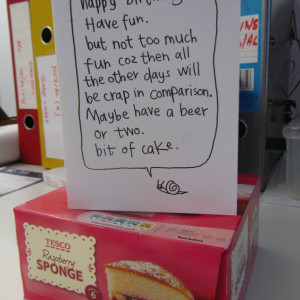 happy birthday
Have fun.
but not too much
fun coz then all
the other days will
be crap in comparison.
Maybe have a beer
or two.
bit of cake.
TESCO
Raspberry
SPONGE